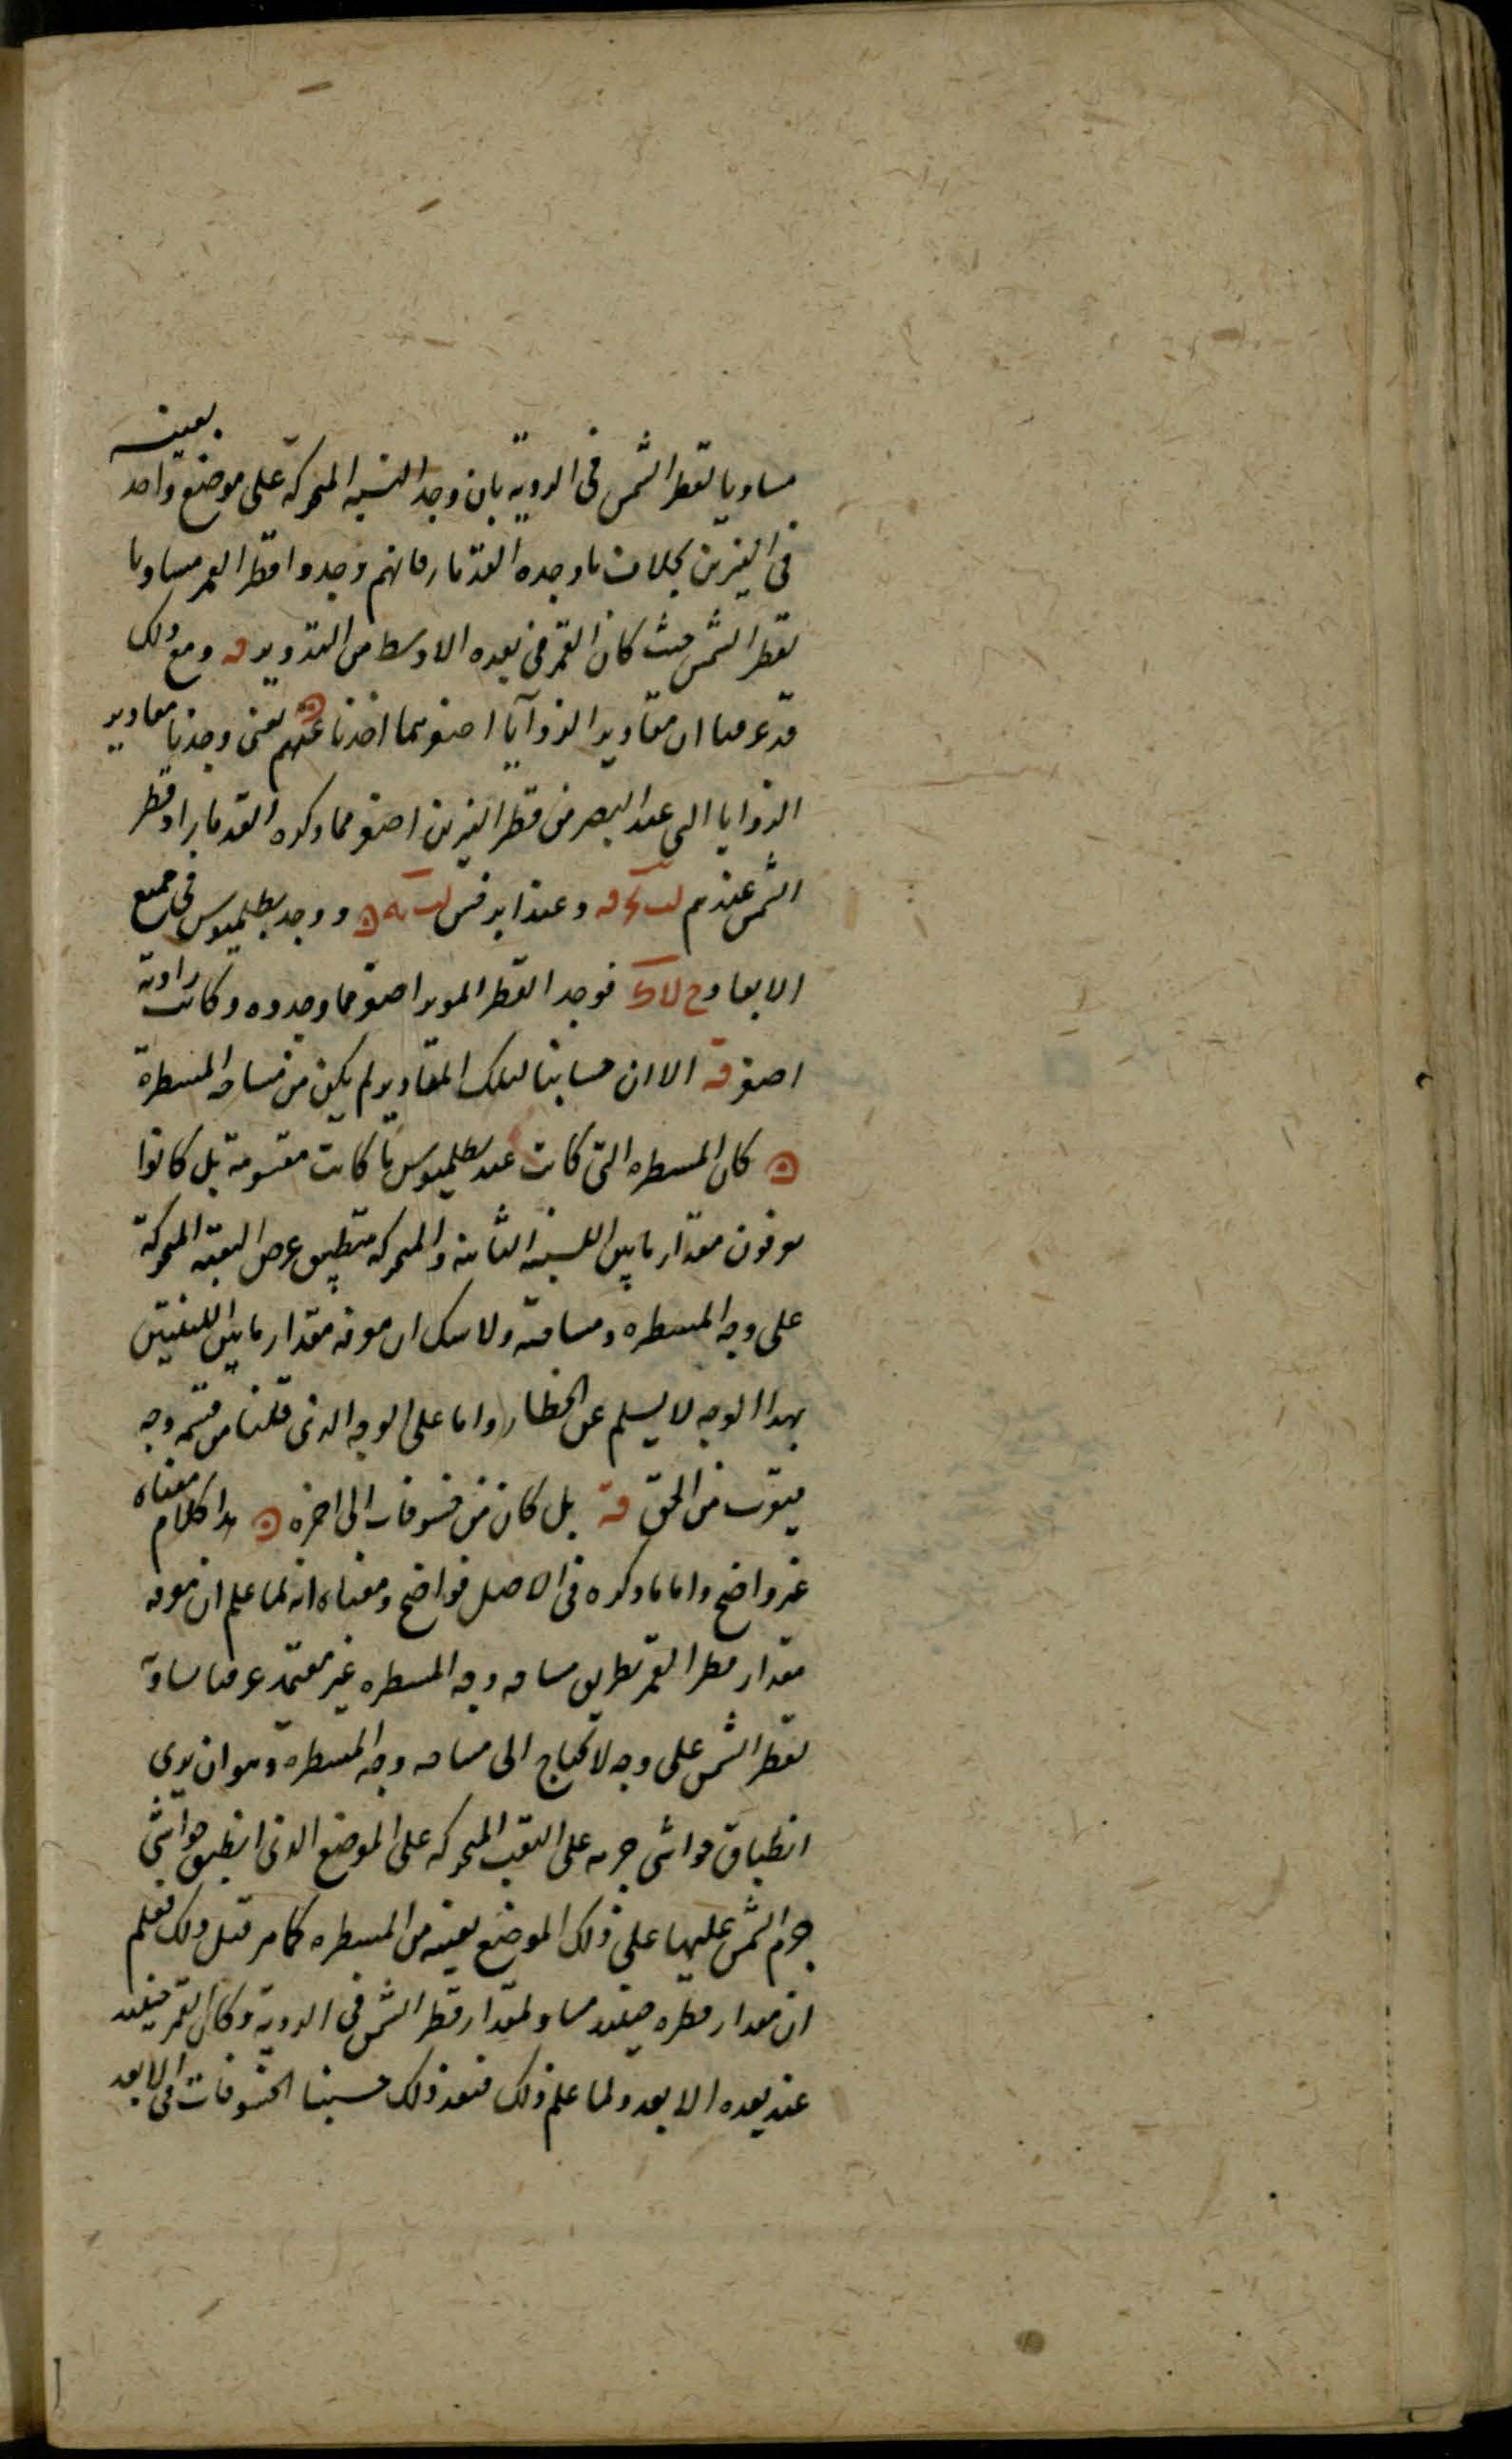 مساويا لقطر الشمس فى الروية بان وجد اللبنه المتحركة على موضع واحد بعينه
فى النيرين بخلاف ما وجده القدماء فانهم وجدوا قطر القمر مساويا
لقطر الشمس حيث كان القمر فى بعده الاوسط من التدوير قه ومع ذلك
قد عرفنا ان مقادير الزوايا اصغر مما اخذنا عنهم يعنى وجدنا مقادير
الزوايا التى عند البصر من قطر النيرين اصغر مما ذكره القدماء اذ قطر
الشمس عندهم وعند ابرخس ووجد بطلميوس فى جميع
الابعاد فوجد القطر المرى اصغر مما وجدوه وكانت زاوية
اصغر قه الا ان حسابنا لتلك المقادير لم يكن من مساحه المسطرة
كان المسطره التى كانت عند بطلميوس ما كانت مقسومة بل كانوا
يعرفون مقدار ما بين اللبنه الثابته والمتحركه بتطبيق عرض الثقبه المتحركة
على وجه المسطره ومساحته ولا شك ان معرفه مقدار ما بين اللبنتين
بهذا الوجه لا يسلم عن الخطاء واما على الوجه الذى قلنا من قسمه وجه
فيقرب من الحق قه بل كان من خسوفات الى اخره هذا كلام معناه
غير واضح واما ما ذكره فى الاصل فواضح ومعناه انه لما علم ان معرفه
مقدار قطر القمر بطريق مساحه وجه المسطره غير معتمد عرفنا مساوته
لقطر الشمس على وجه لا يحتاج الى مساحه وجه المسطرة وهو ان يرى
انطباق حواشى جرمه على الثقب المتحركه على الموضع الذى انطبق حواشى
جرم الشمس عليها على ذلك الموضع بعينه من المسطره كما مر قبل ذلك فعلم
ان مقدار قطره حينئذ مساو لمقدار قطر الشمس فى الروية وكان القمر حينئذ
عند بعده الابعد ولما علم ذلك فبعد ذلك حسبنا الخسوفات فى الابعد